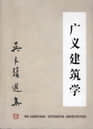 广义建筑学
吴良鏞選集